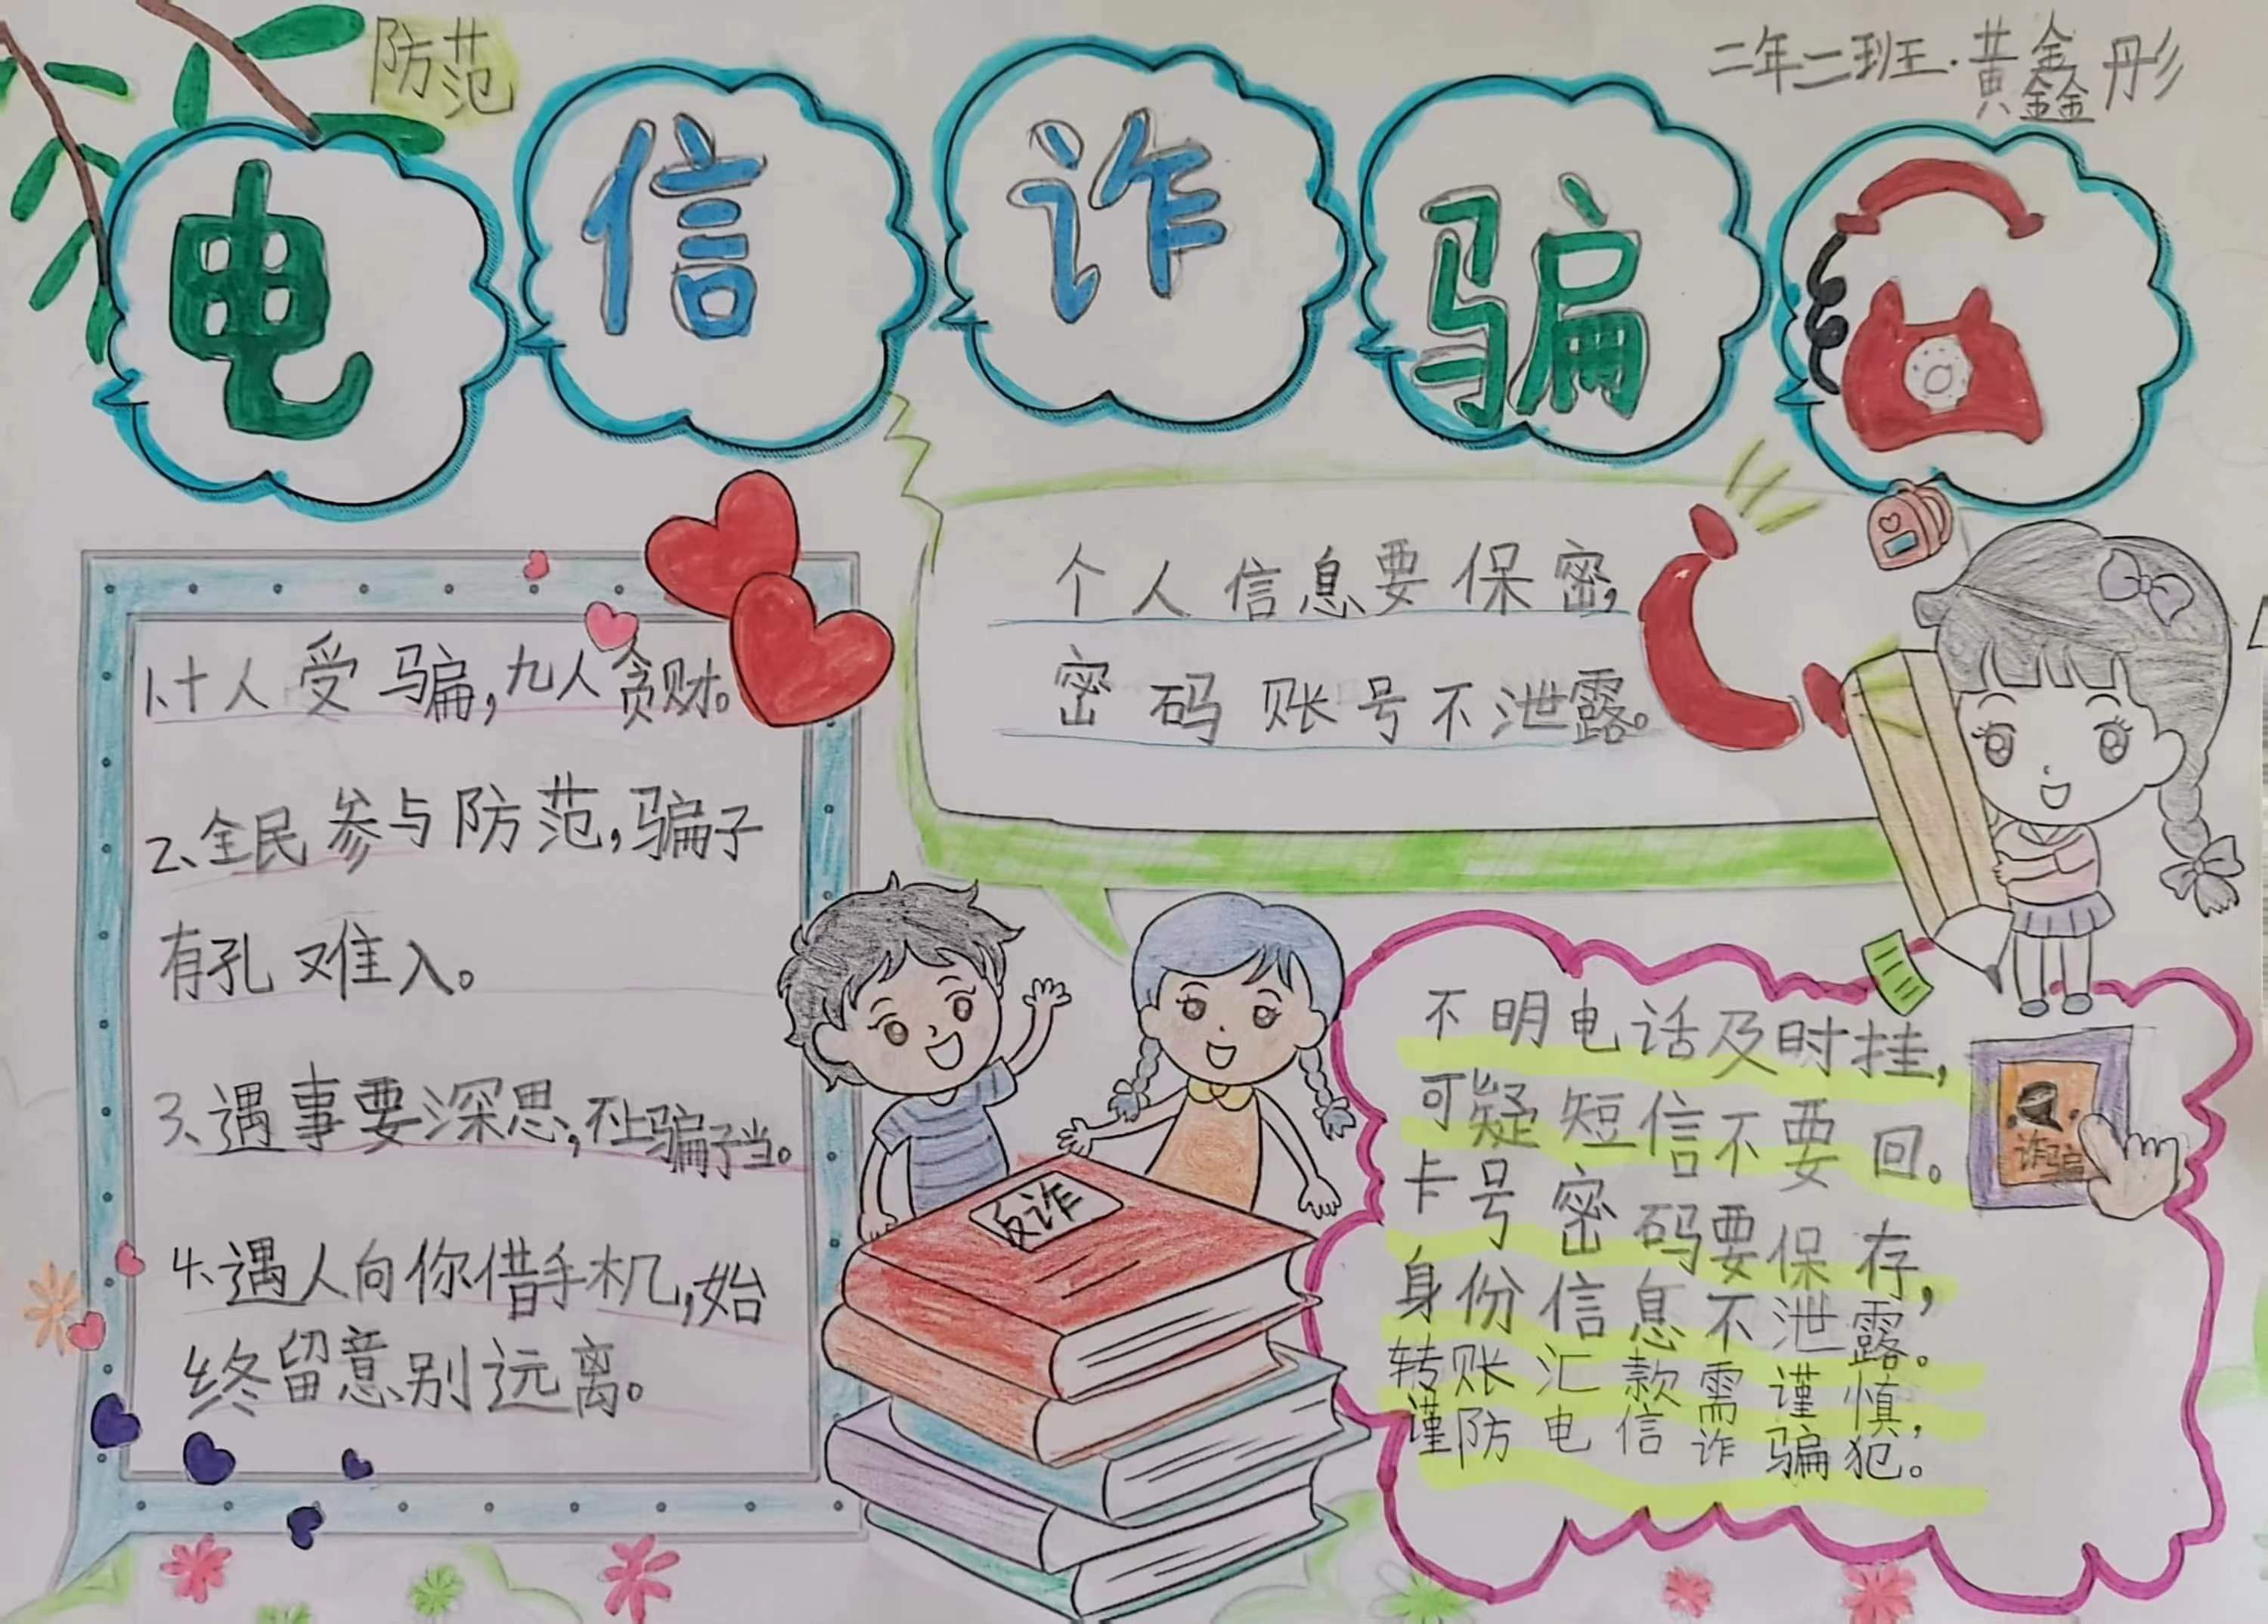 防范
二年二班.黄鑫彤
电信诈骗
个人信息要保密,
密码账号不泄露。
1.十人受骗,九人贪财。
2、全民参与防范,骗子
有孔难入。
3、遇事要深思,不上骗子当。
4、遇人向你借手机,始
终留意别远离。
反诈
不明电话及时挂,
可疑短信不要回。
卡号密码要保存,
身份信息不泄露。
转账汇款需谨慎,
谨防电信诈骗犯。
诈骗